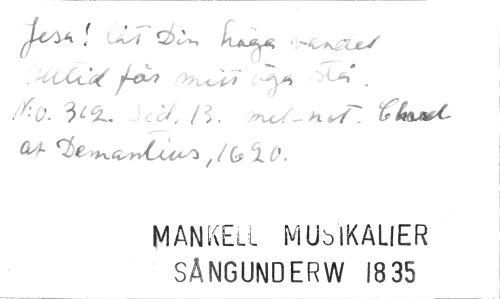 Jesu! låt Din höga vandel
Alltid för mitt öga stå.
N:o. 312. Sid. 13. mel-not. Choral
af Demantius, 1620.
MANKELL MUSIKALIER
SÅNGUNDERW 1835